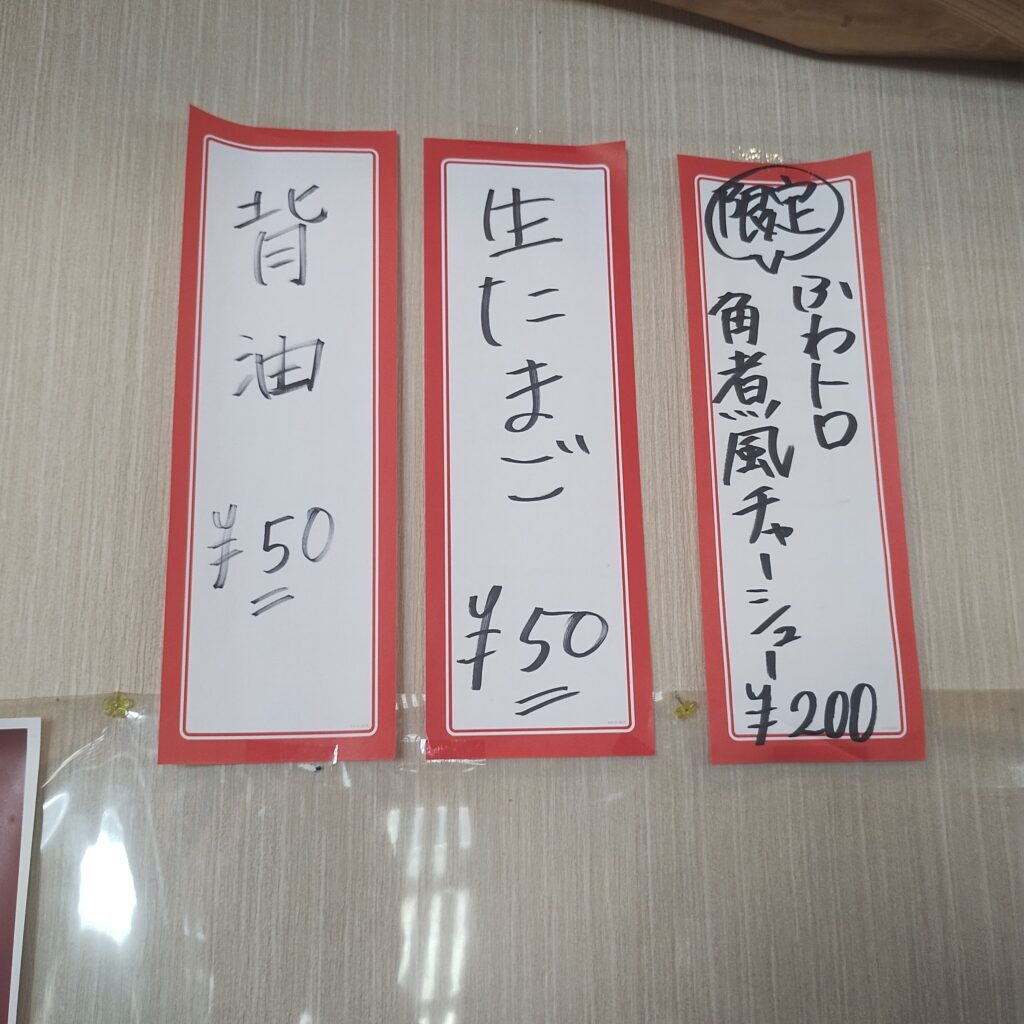 背油
¥50
生たまご
¥50
限定
ふわトロ
角煮風チャーシュー
¥200